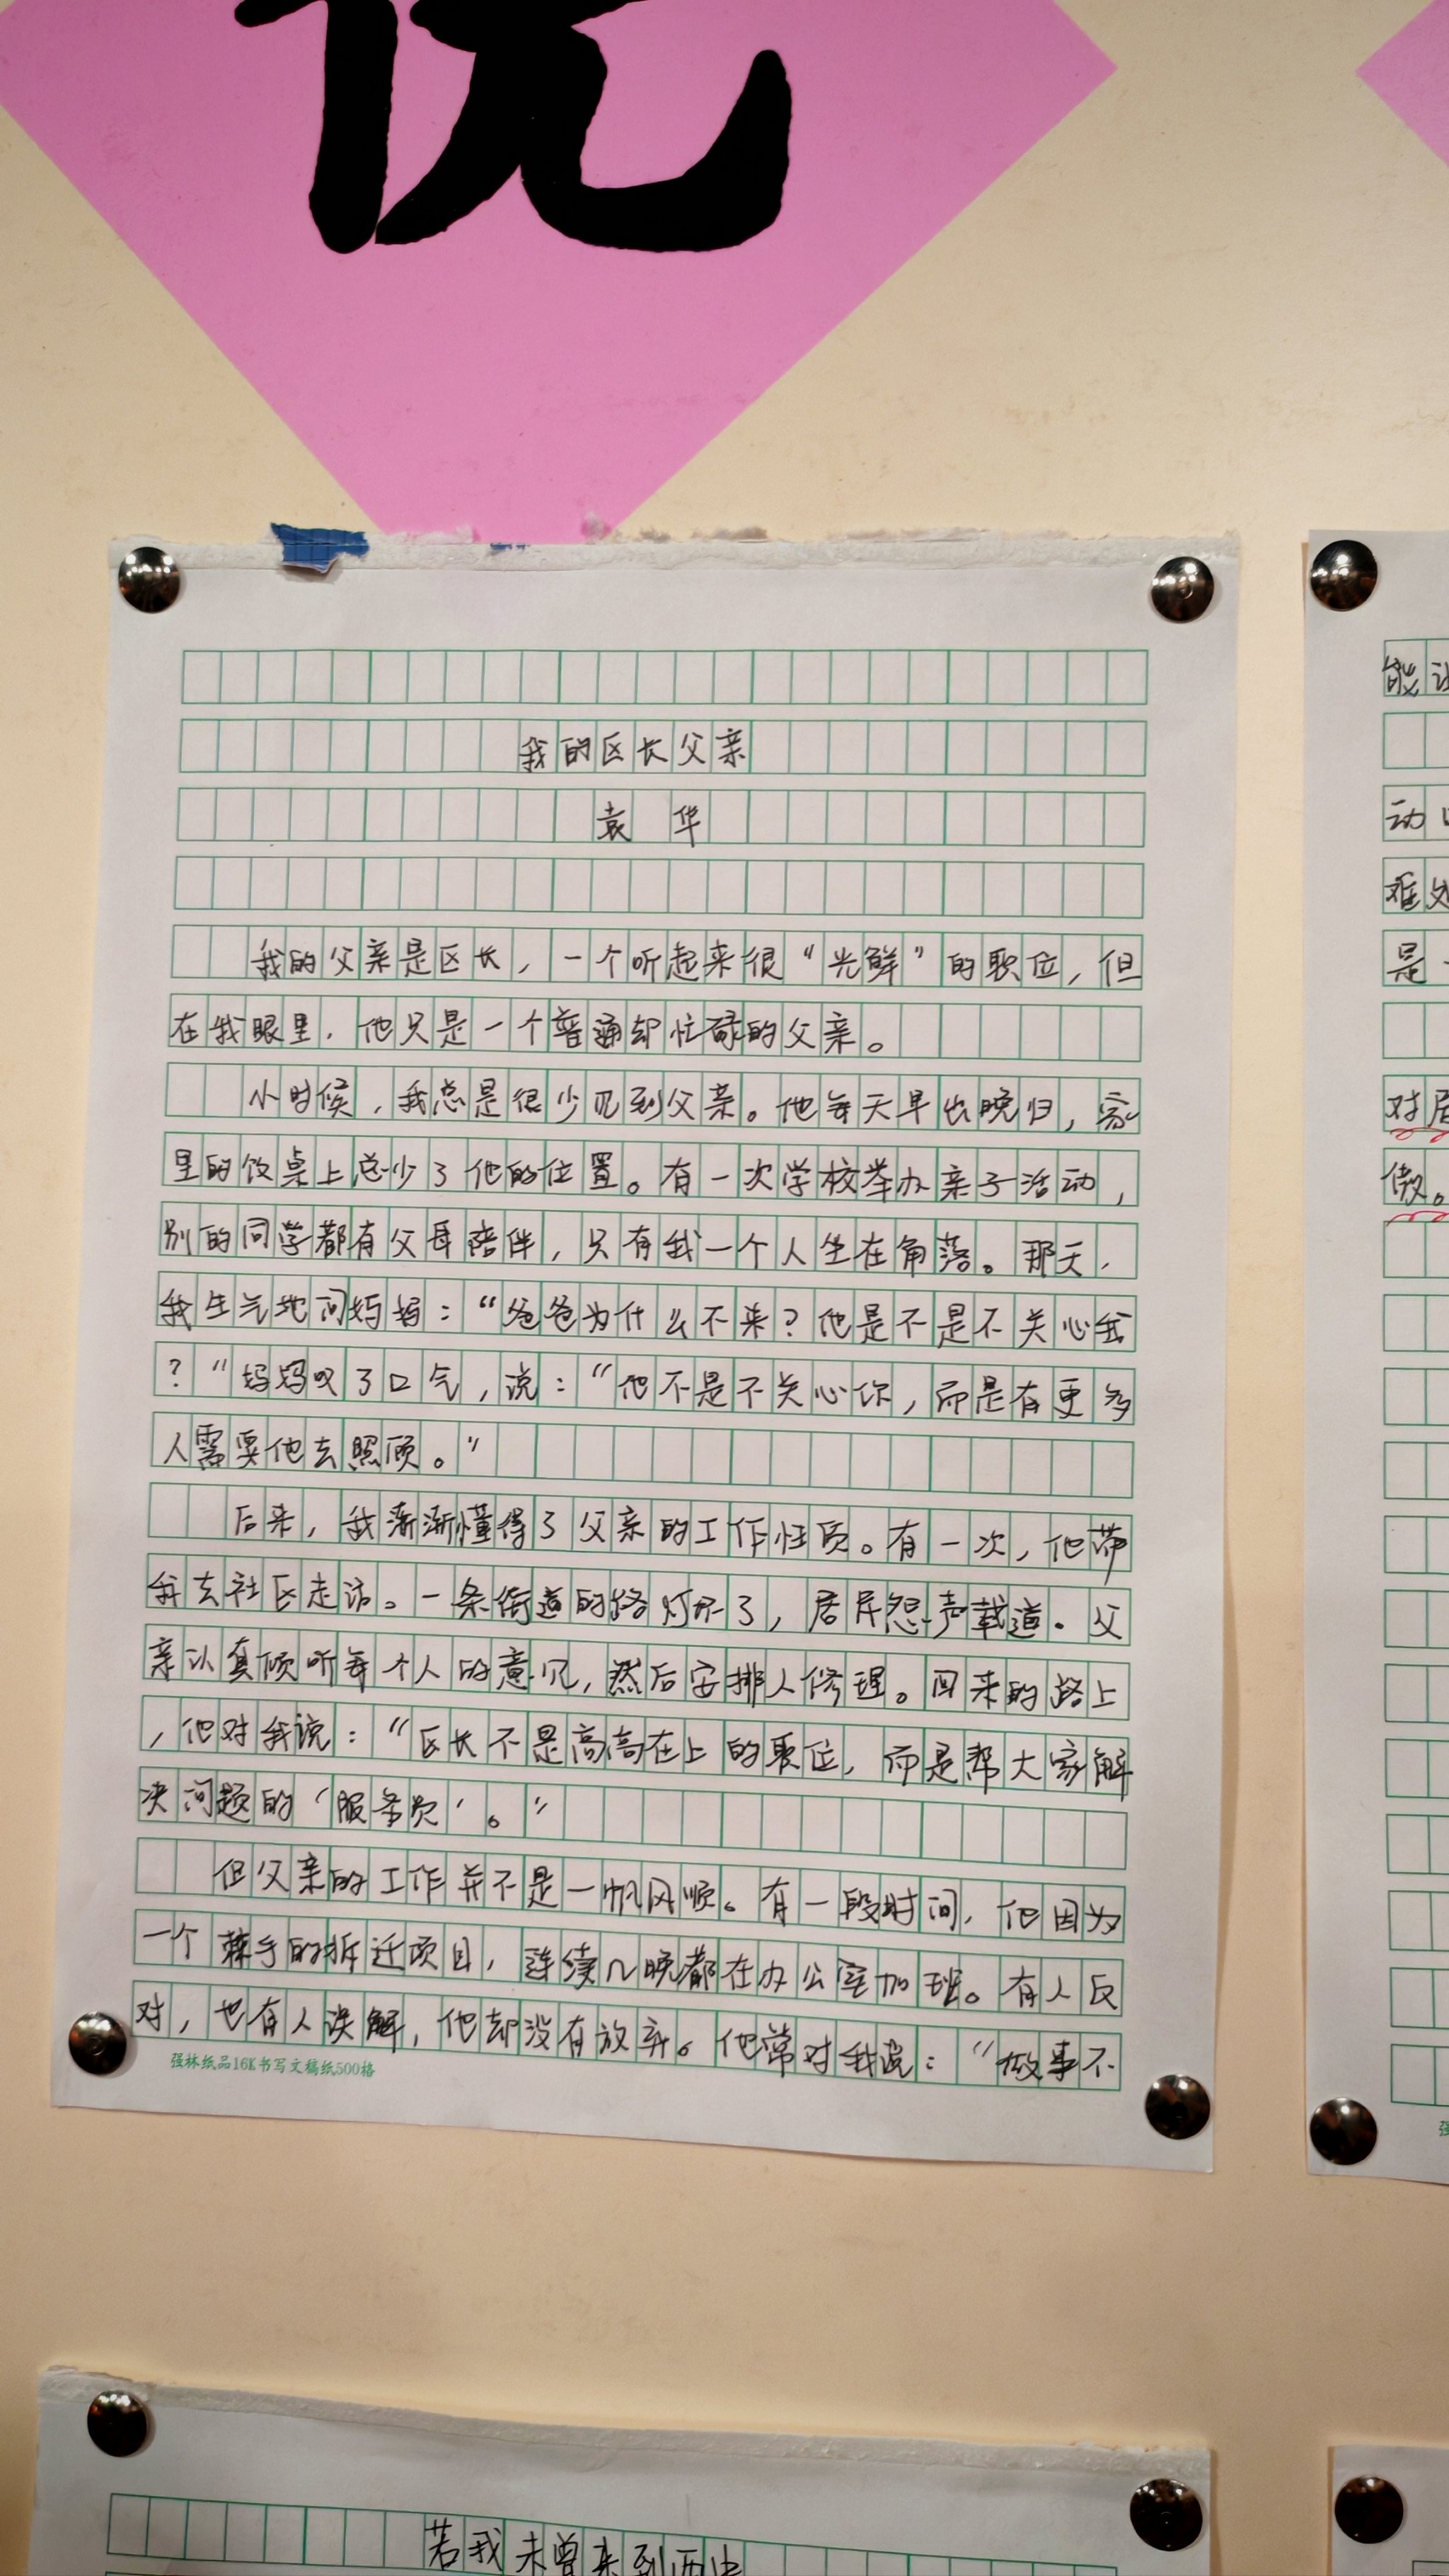 我的区长父亲
袁 华
我的父亲是区长，一个听起来很“光鲜”的职位，但
在我眼里，他只是一个普通却忙碌的父亲。
小时候，我总是很少见到父亲。他每天早出晚归，家
里的饭桌上总少了他的位置。有一次学校举办亲子活动，
别的同学都有父母陪伴，只有我一个人坐在角落。那天，
我生气地问妈妈：“爸爸为什么不来？他是不是不关心我
？”妈妈叹了口气，说：“他不是不关心你，而是有更多
人需要他去照顾。”
后来，我渐渐懂得了父亲的工作性质。有一次，他带
我去社区走访。一条街道的路灯坏了，居民怨声载道。父
亲认真倾听每个人的意见，然后安排人修理。回来的路上
，他对我说：“区长不是高高在上的职位，而是帮大家解
决问题的‘服务员’。”
但父亲的工作并不是一帆风顺。有一段时间，他因为
一个棘手的拆迁项目，连续几晚都在办公室加班。有人反
对，也有人误解，他却没有放弃。他常对我说：“做事不
强林纸品16K书写文稿纸500格
能
动
难处
是一
对居
傲。
若我未曾来到